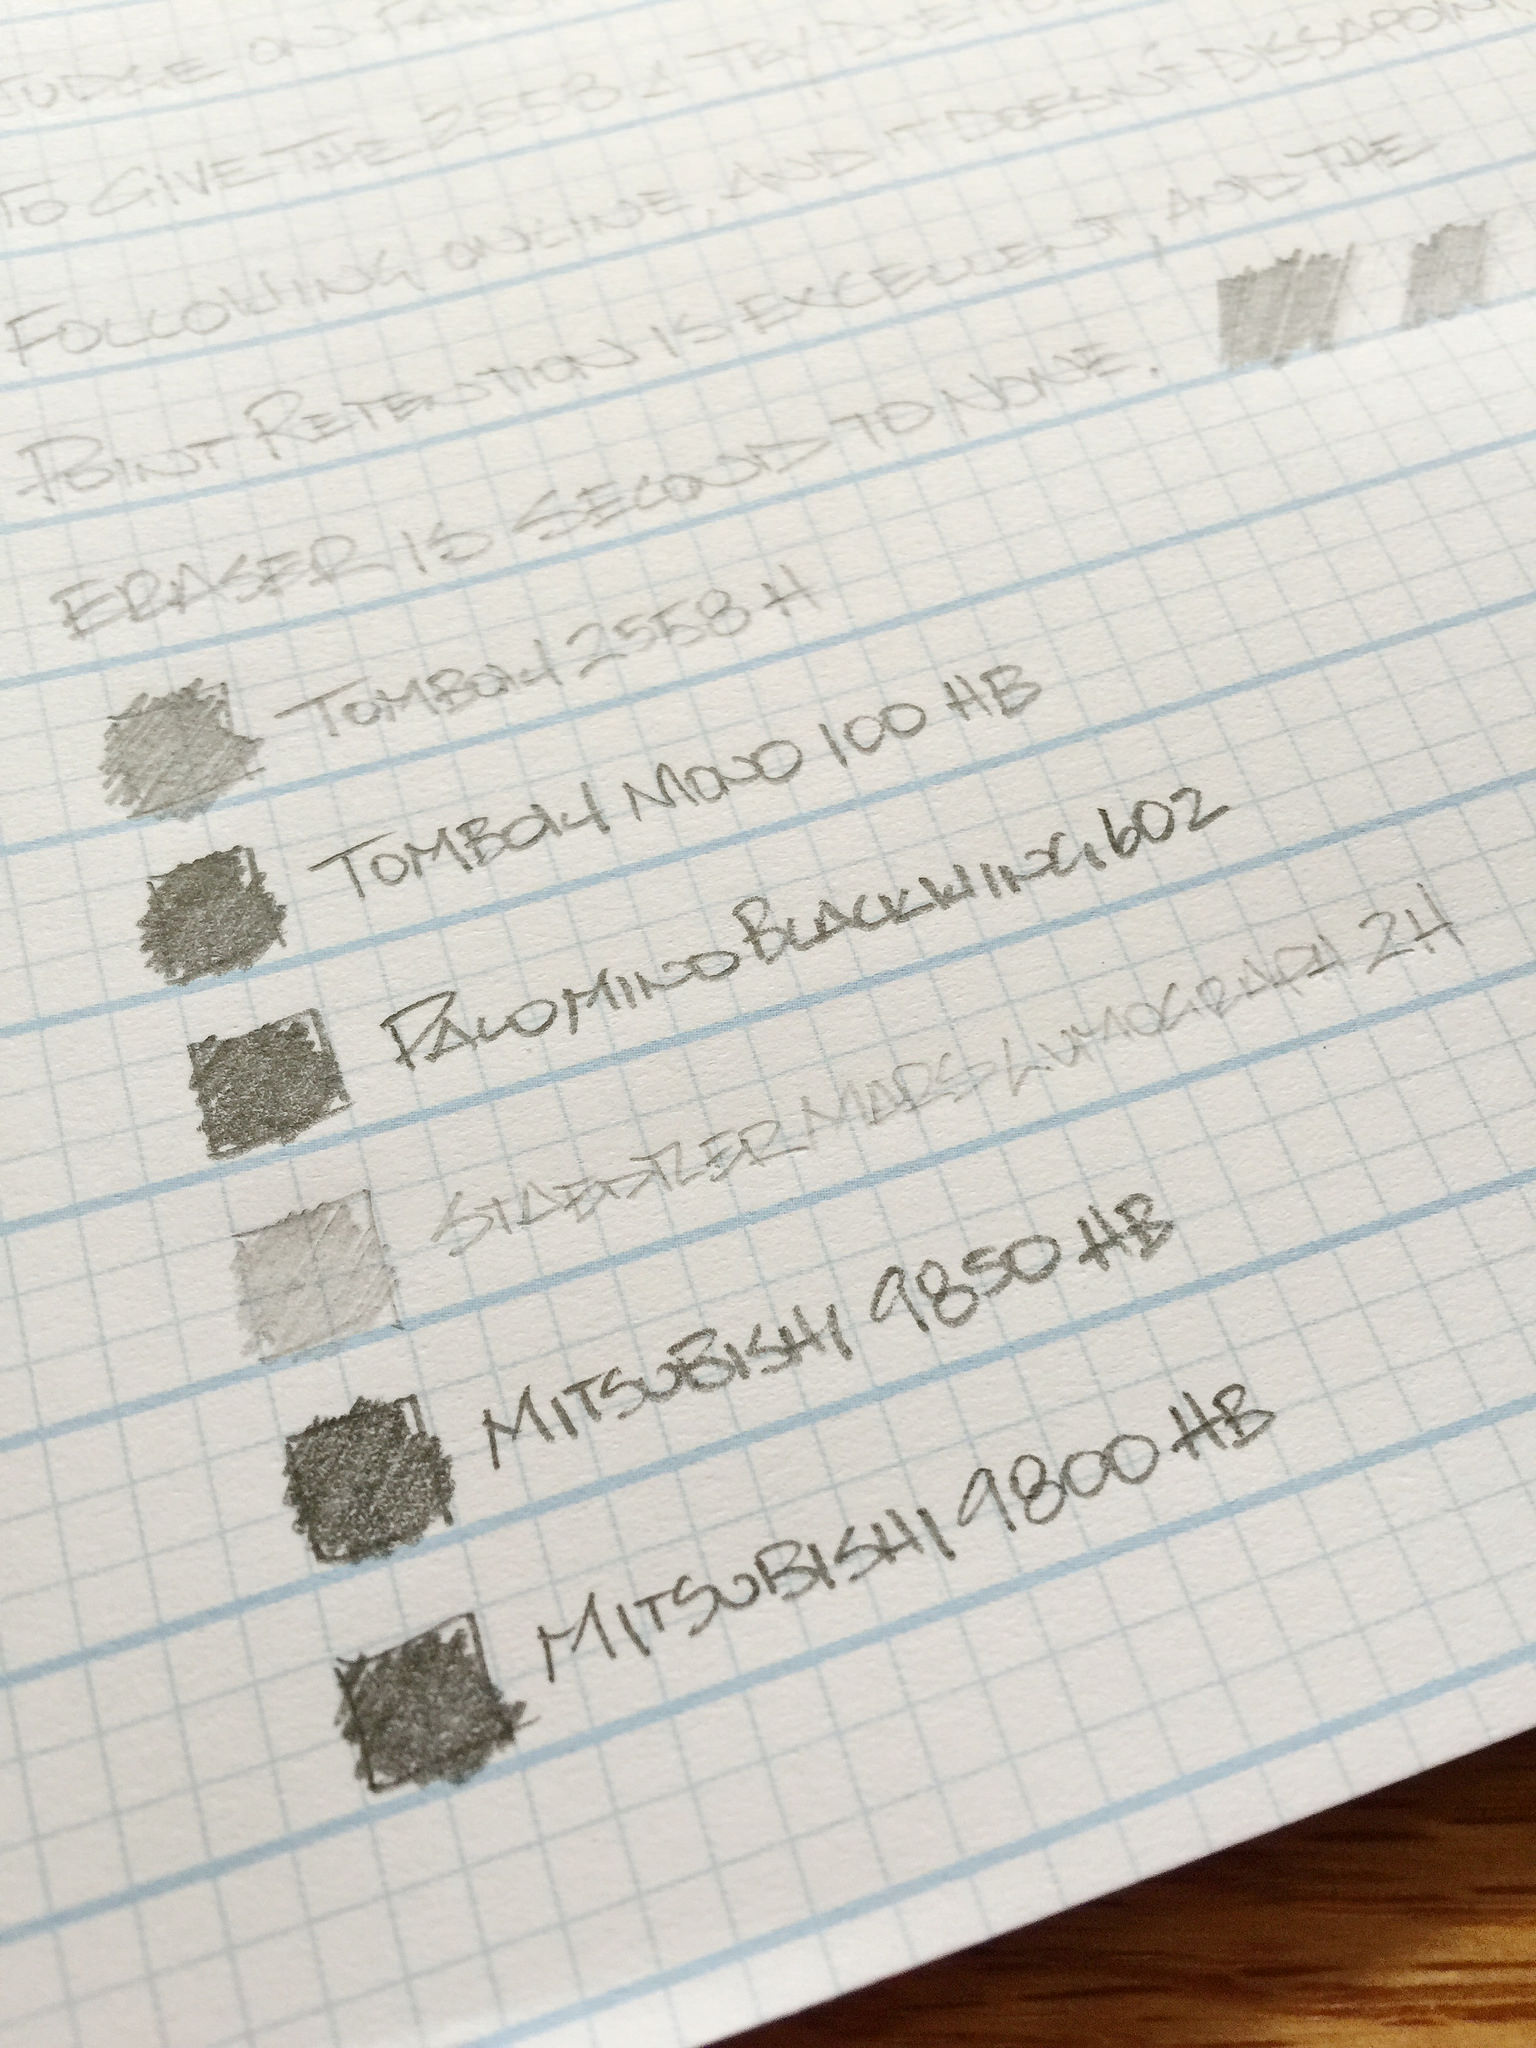 JUDGE ON
TO GIVE THE 2558 A TRY DUE TO
FOLLOWING ONLINE, AND IT DOESN'T DISSAPOINT
POINT RETENTION IS EXCELLENT, AND THE
ERASER IS SECOND TO NONE.
TOMBOW 2558 H
TOMBOW MONO 100 HB
PALOMINO BLACKWING 602
STAEDTLER MARS LUMOGRAPH 2H
MITSUBISHI 9850 HB
MITSUBISHI 9800 HB